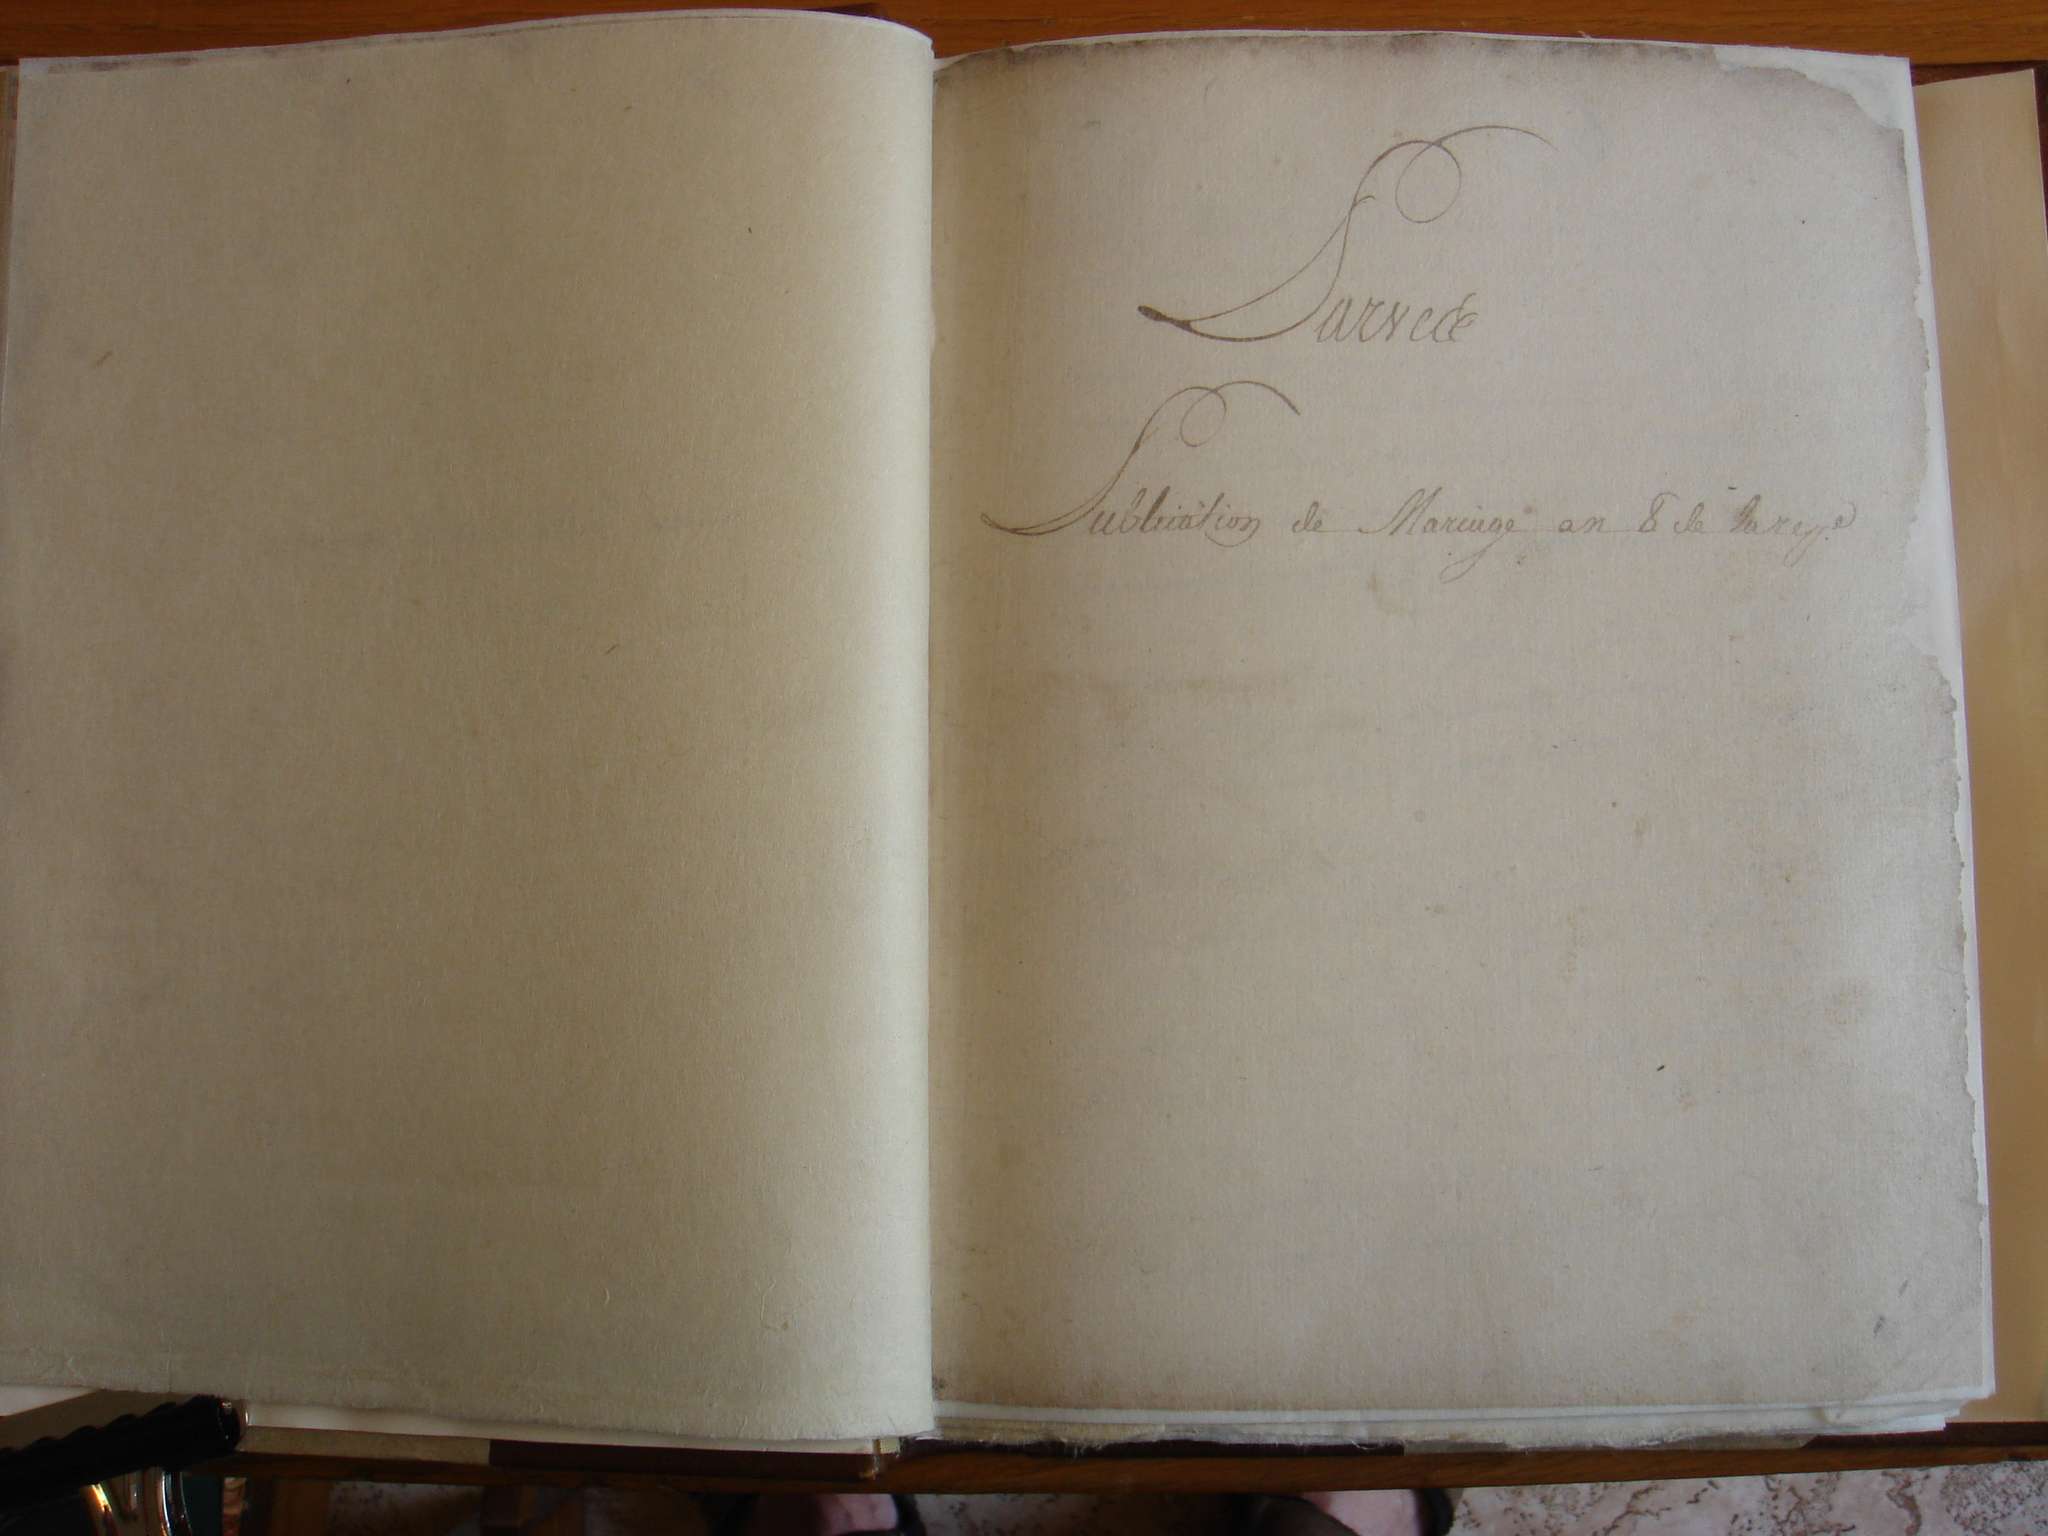 Larvede
Publication de Mariage an 8 de Larep.e